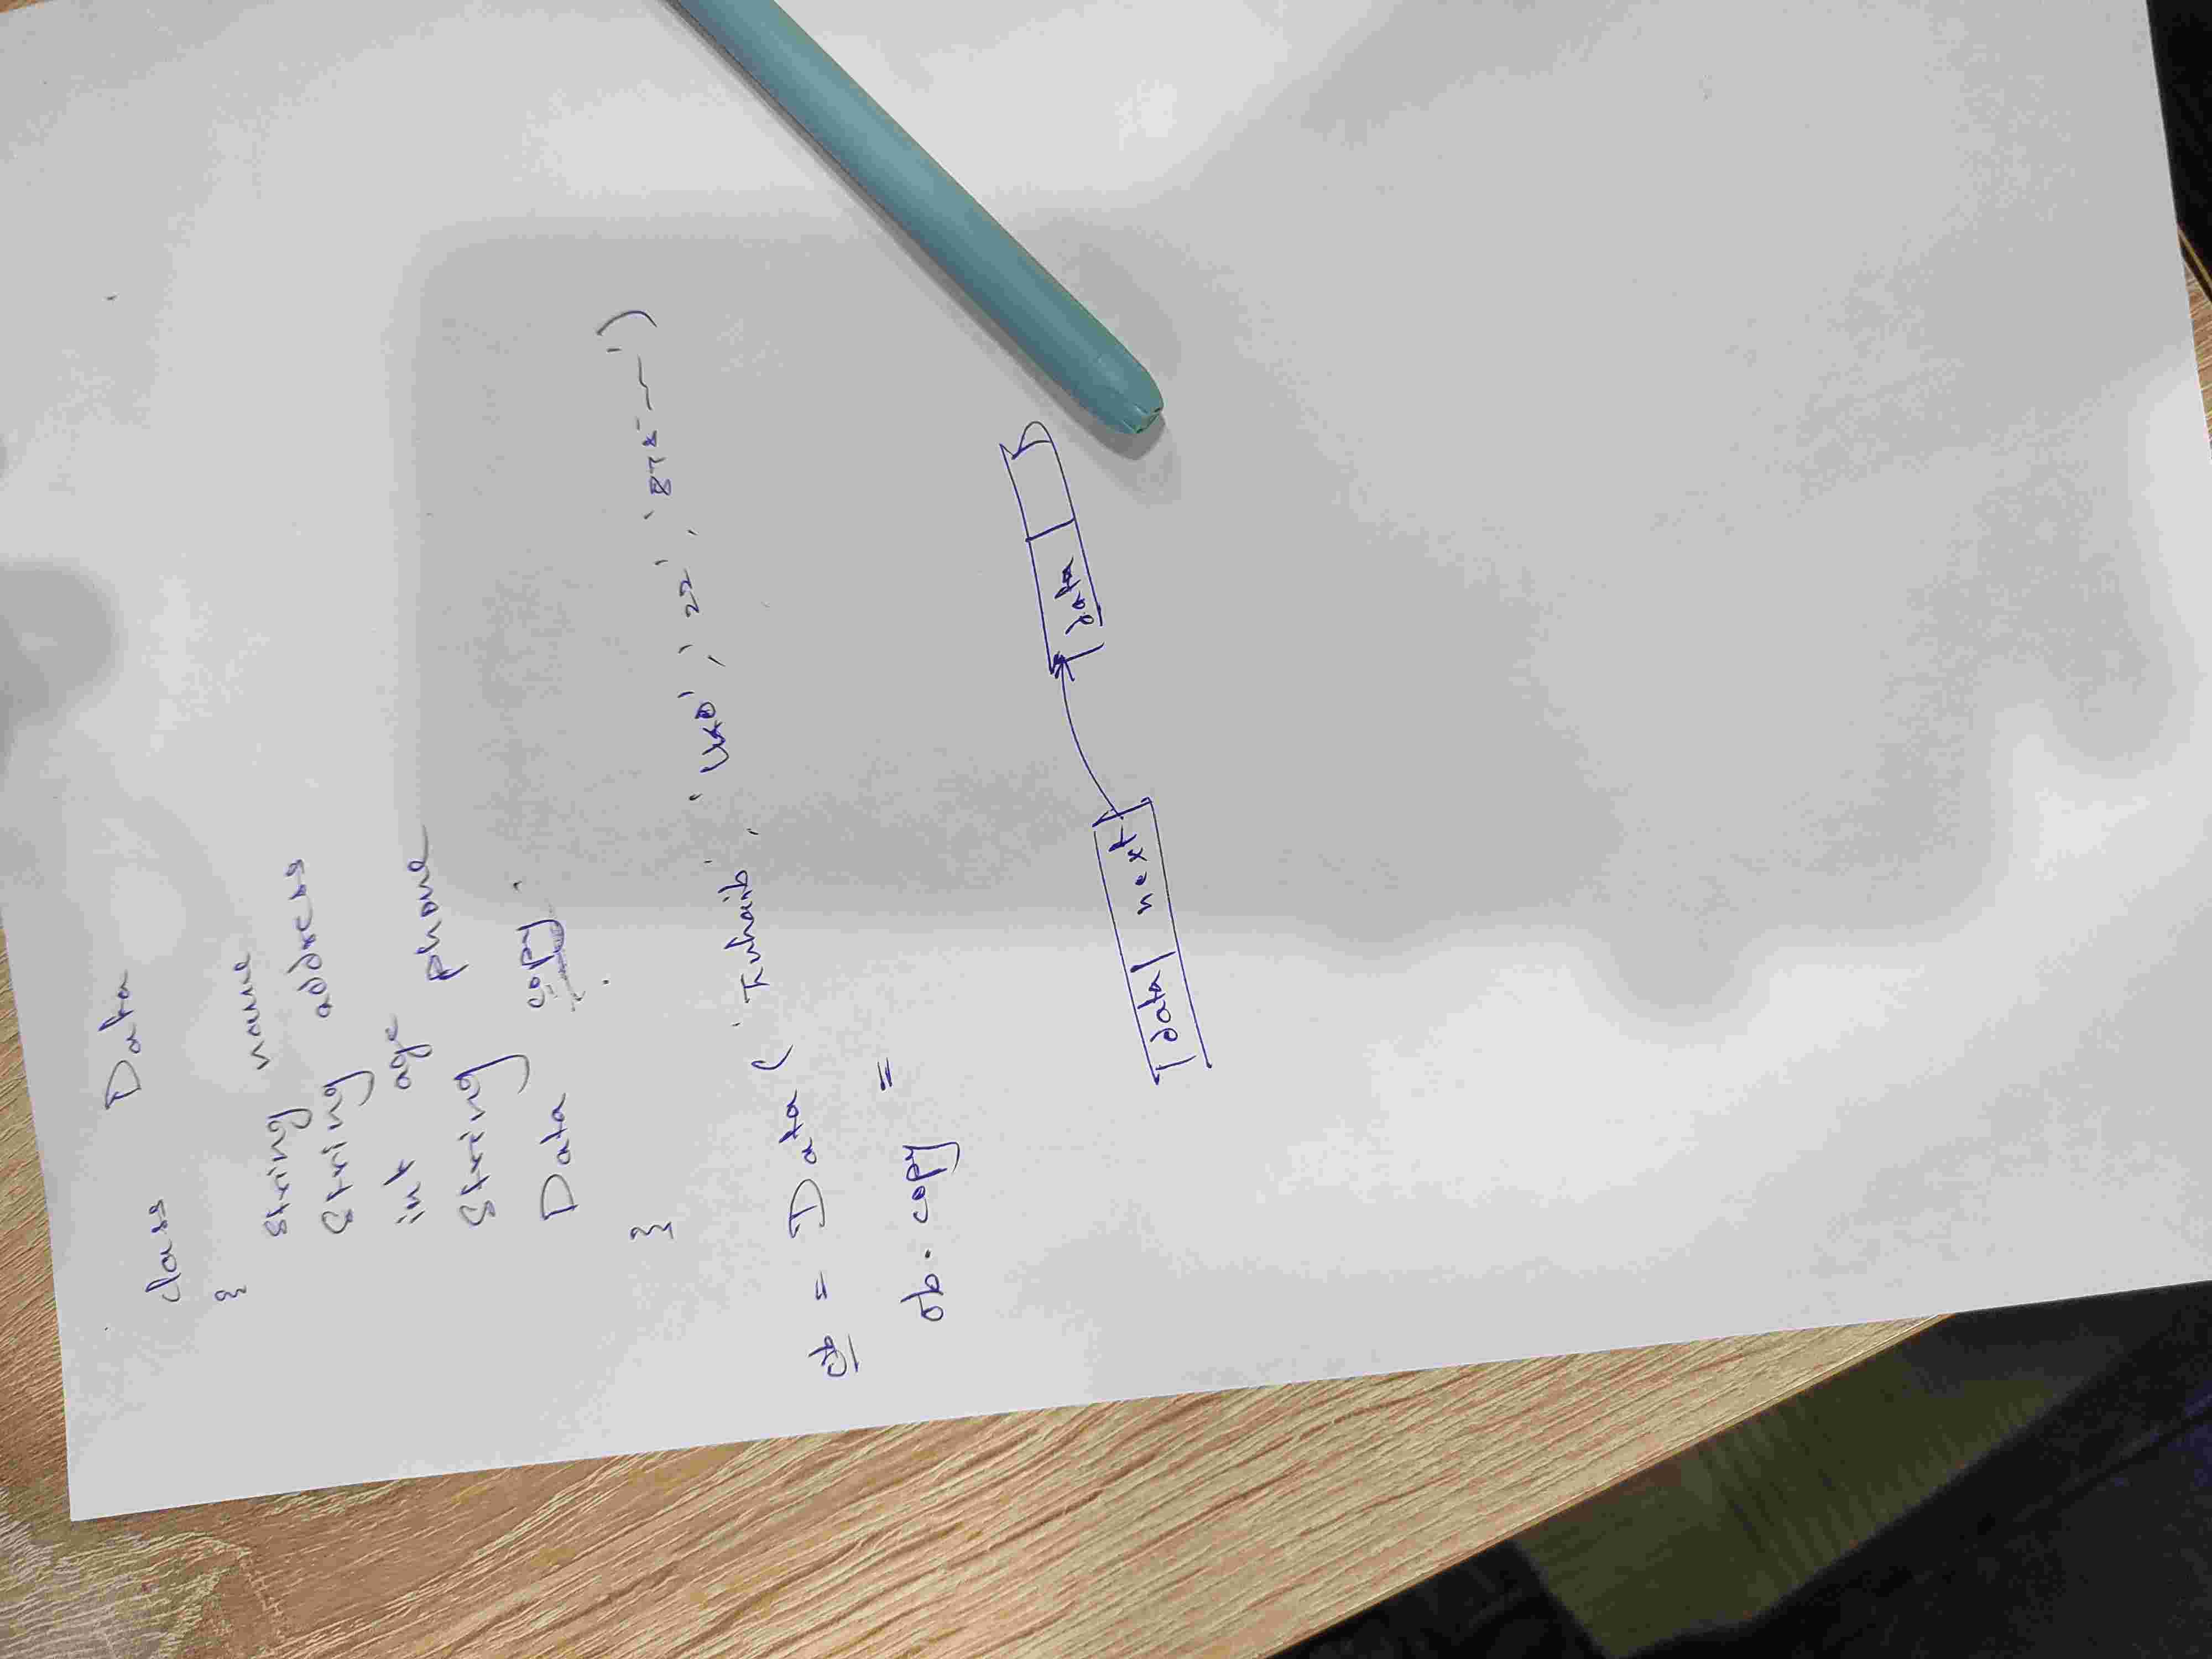 class Data
{
string name
String address
int age
String phone
Data copy
}
ob = Data ( ' ', ' ', '22', '875 ')
ob. copy =
data next
data